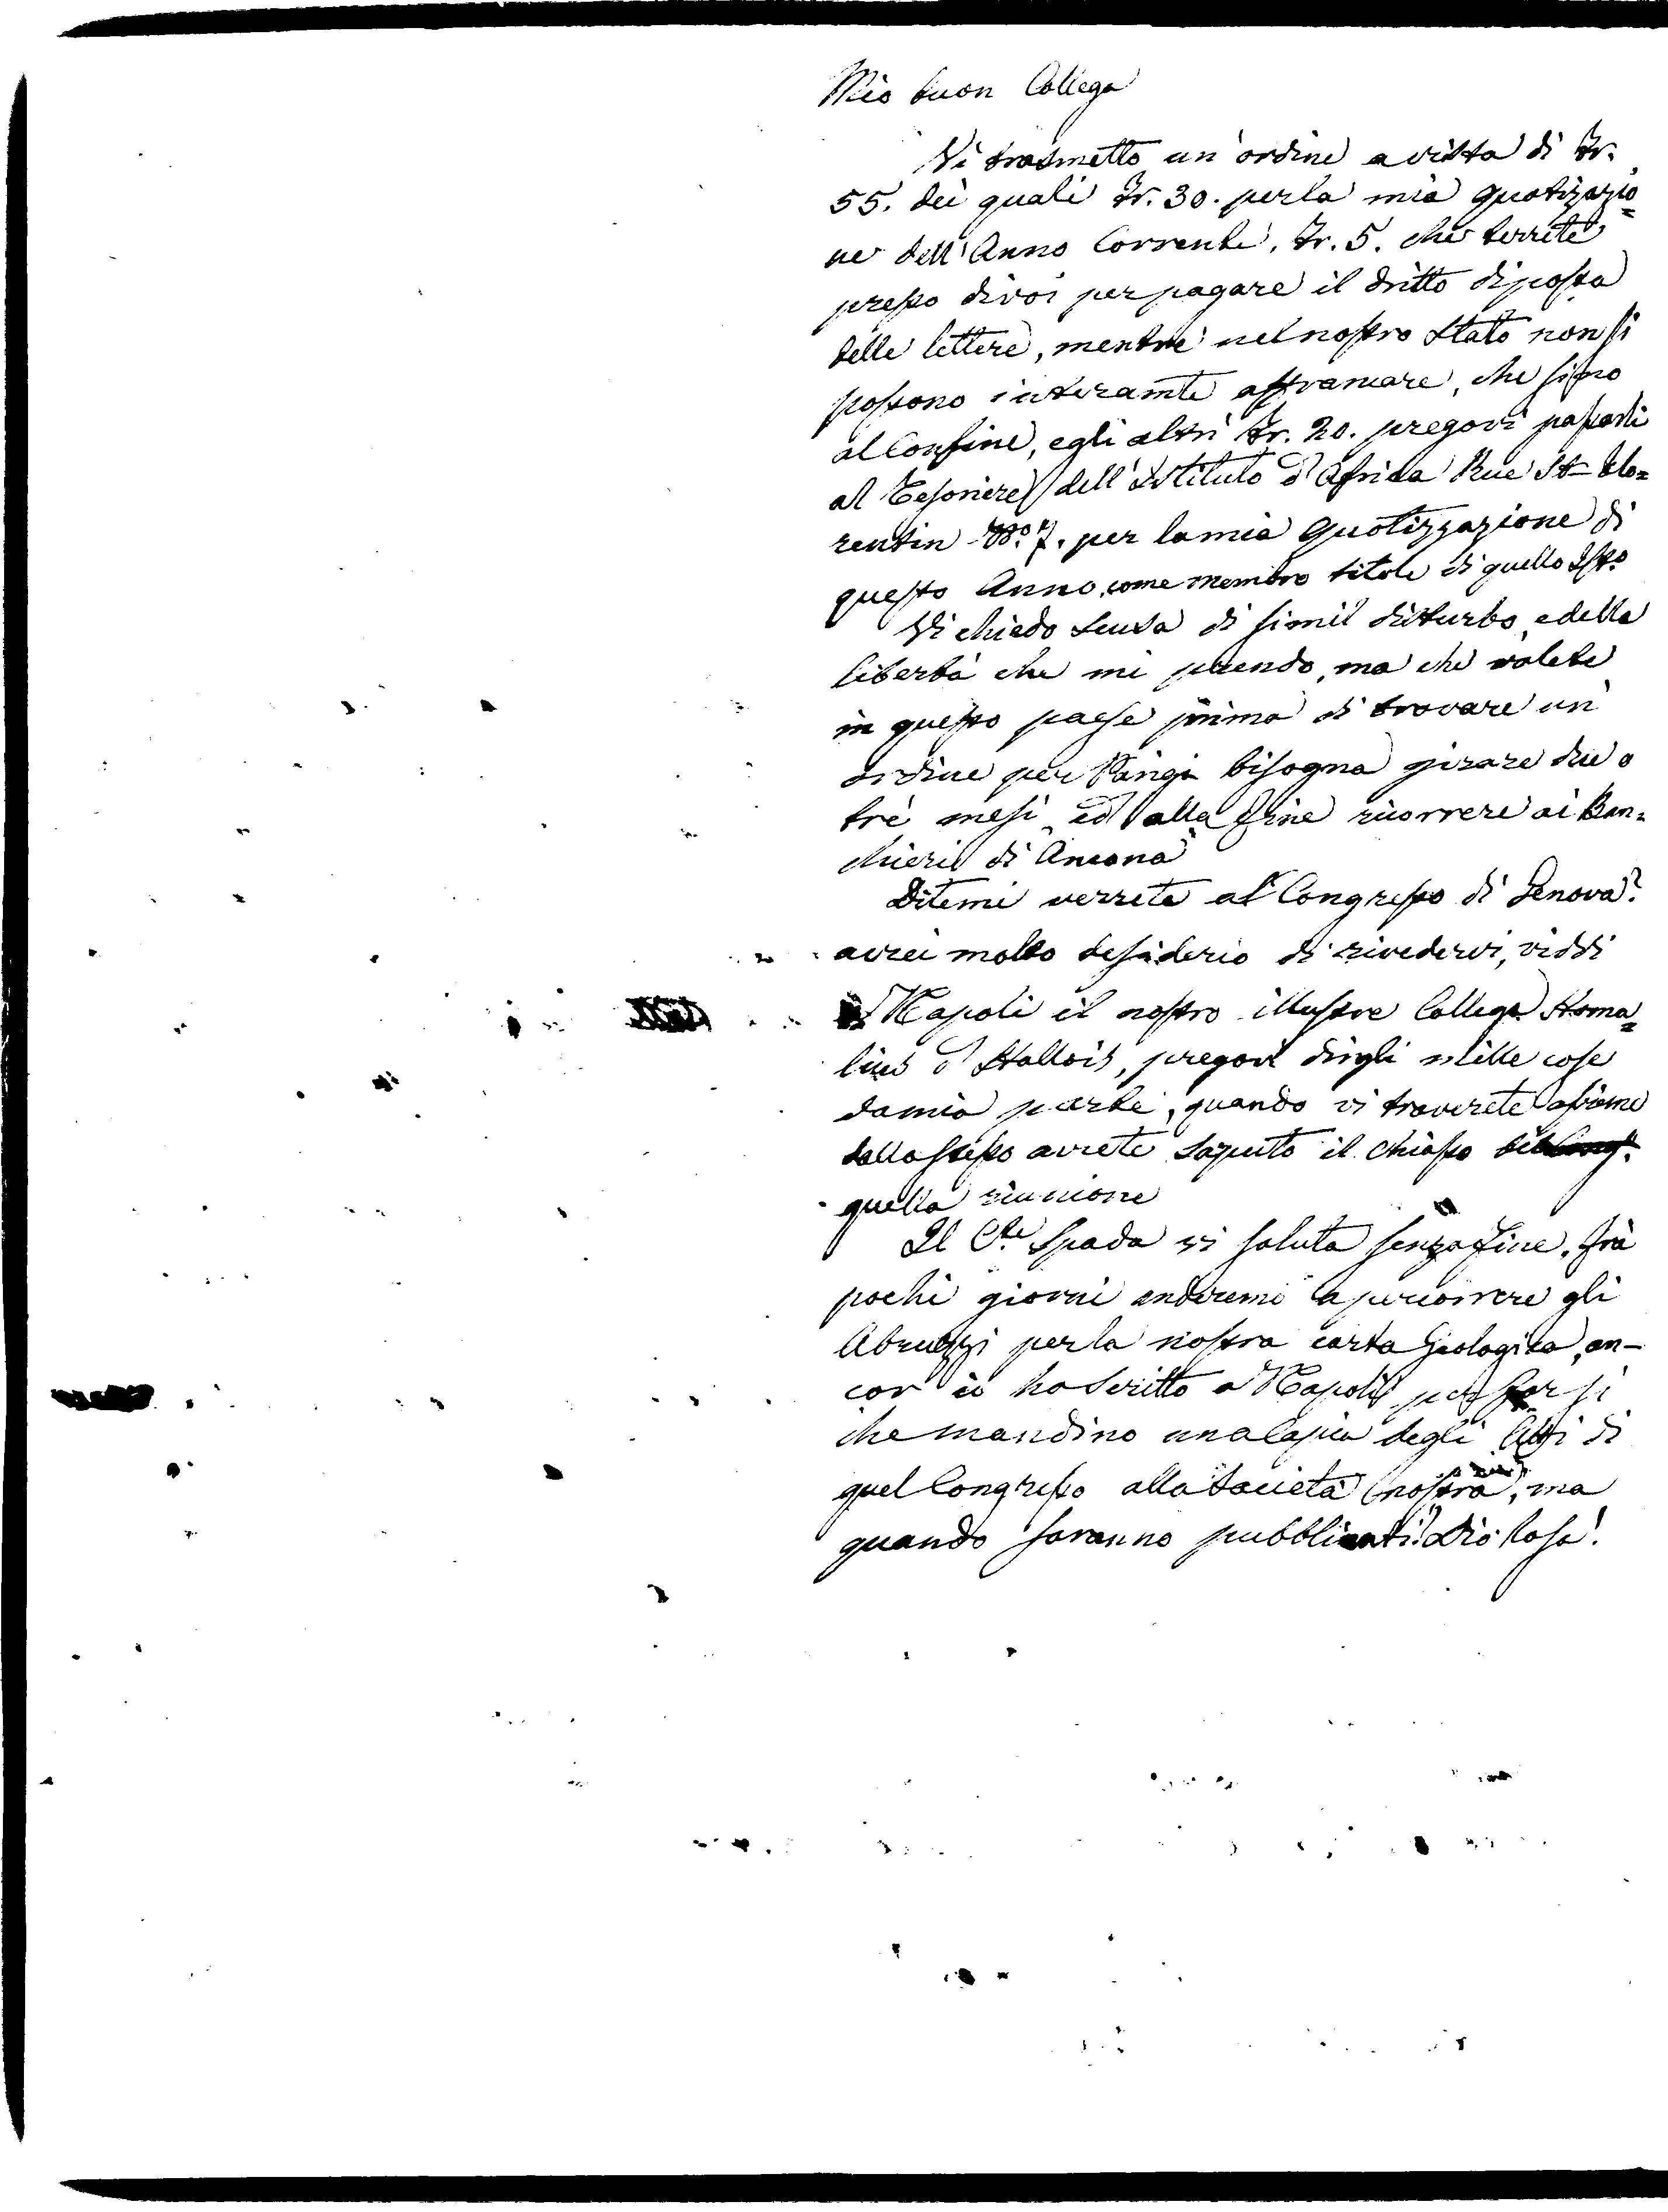 Mio buon Collega
Vi trasmetto un'ordine a vista di Fr.
55. dei quali Fr. 30. per la mia quotizazio=
ne dell'Anno Corrente, Fr. 5. che terrete
presso di voi per pagare il dritto di posta
delle lettere, mentre nel nostro Stato non si
possono interamte affrancare, che sino
al Confine, e gli altri Fr. 20. pregovi passarli
al Tesoriere dell'Istituto d'Africa Rue St
rentin No. 7. per la mia quotizzazione di
questo Anno, come membro titole di quello Isto
Vi chiedo scusa di simil disturbo, e della
libertà che mi prendo, ma che volete
in questo paese prima di trovare un
ordine per Parigi bisogna girare due o
tre mesi ed alla fine ricorrere ai Ban=
chieri di Ancona
Ditemi verrete al Congresso di Genova?
avrei molto desiderio di rivedervi, viddi
Napoli il nostro illustre Collega Homa=
lius d'Hallois, pregovi dirgli mille cose
da mia parte, quando vi troverete assieme
dallo stesso avrete saputo il chiasso di
quella riunione
Il Cte Spada vi saluta senza fine, frà
pochi giorni anderemo a percorrere gli
Abruzzi per la nostra carta Geologica, an-
cor io ho scritto a Napoli per far si
che mandino una Copia degli Atti di
quel Congresso alla Società nostra, ma
quando saranno pubblicati? Dio lo sa!